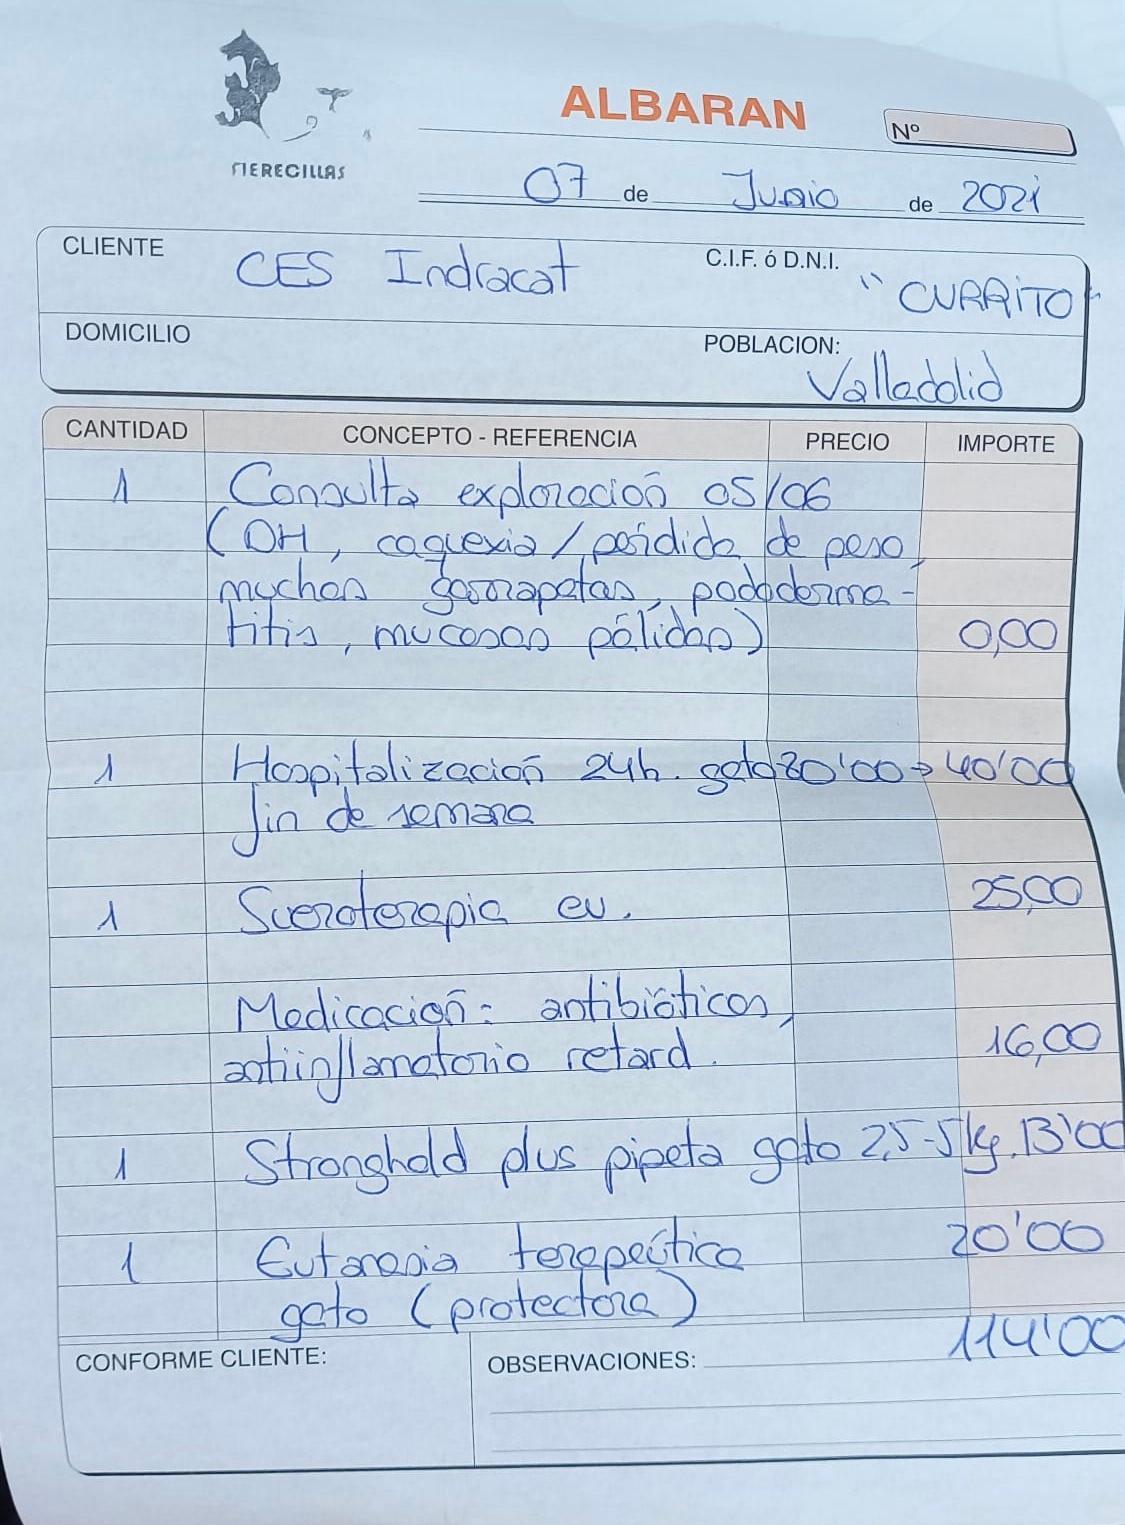 FIERECILLAS
ALBARAN
Nº
07 de Junio de 2021
CLIENTE
CES Indracat
C.I.F. ó D.N.I.
"CURRITO"
DOMICILIO
POBLACION:
Valladolid
CANTIDAD CONCEPTO - REFERENCIA PRECIO IMPORTE
1 Consulta exploración 05/06
(DH, caquexia/pérdida de peso,
muchas garrapatas, pododerma-
titis, mucosas pálidas) 0,00
1 Hospitalización 24h. gato 80'00 → 40'00
fin de semana
1 Sueroterapia ev. 25,00
Medicación: antibióticos,
antiinflamatorio retard. 16,00
1 Stronghold plus pipeta gato 2,5-5kg. 13'00
1 Eutanasia terapeútica 20'00
gato (protectora)
114'00
CONFORME CLIENTE:
OBSERVACIONES: